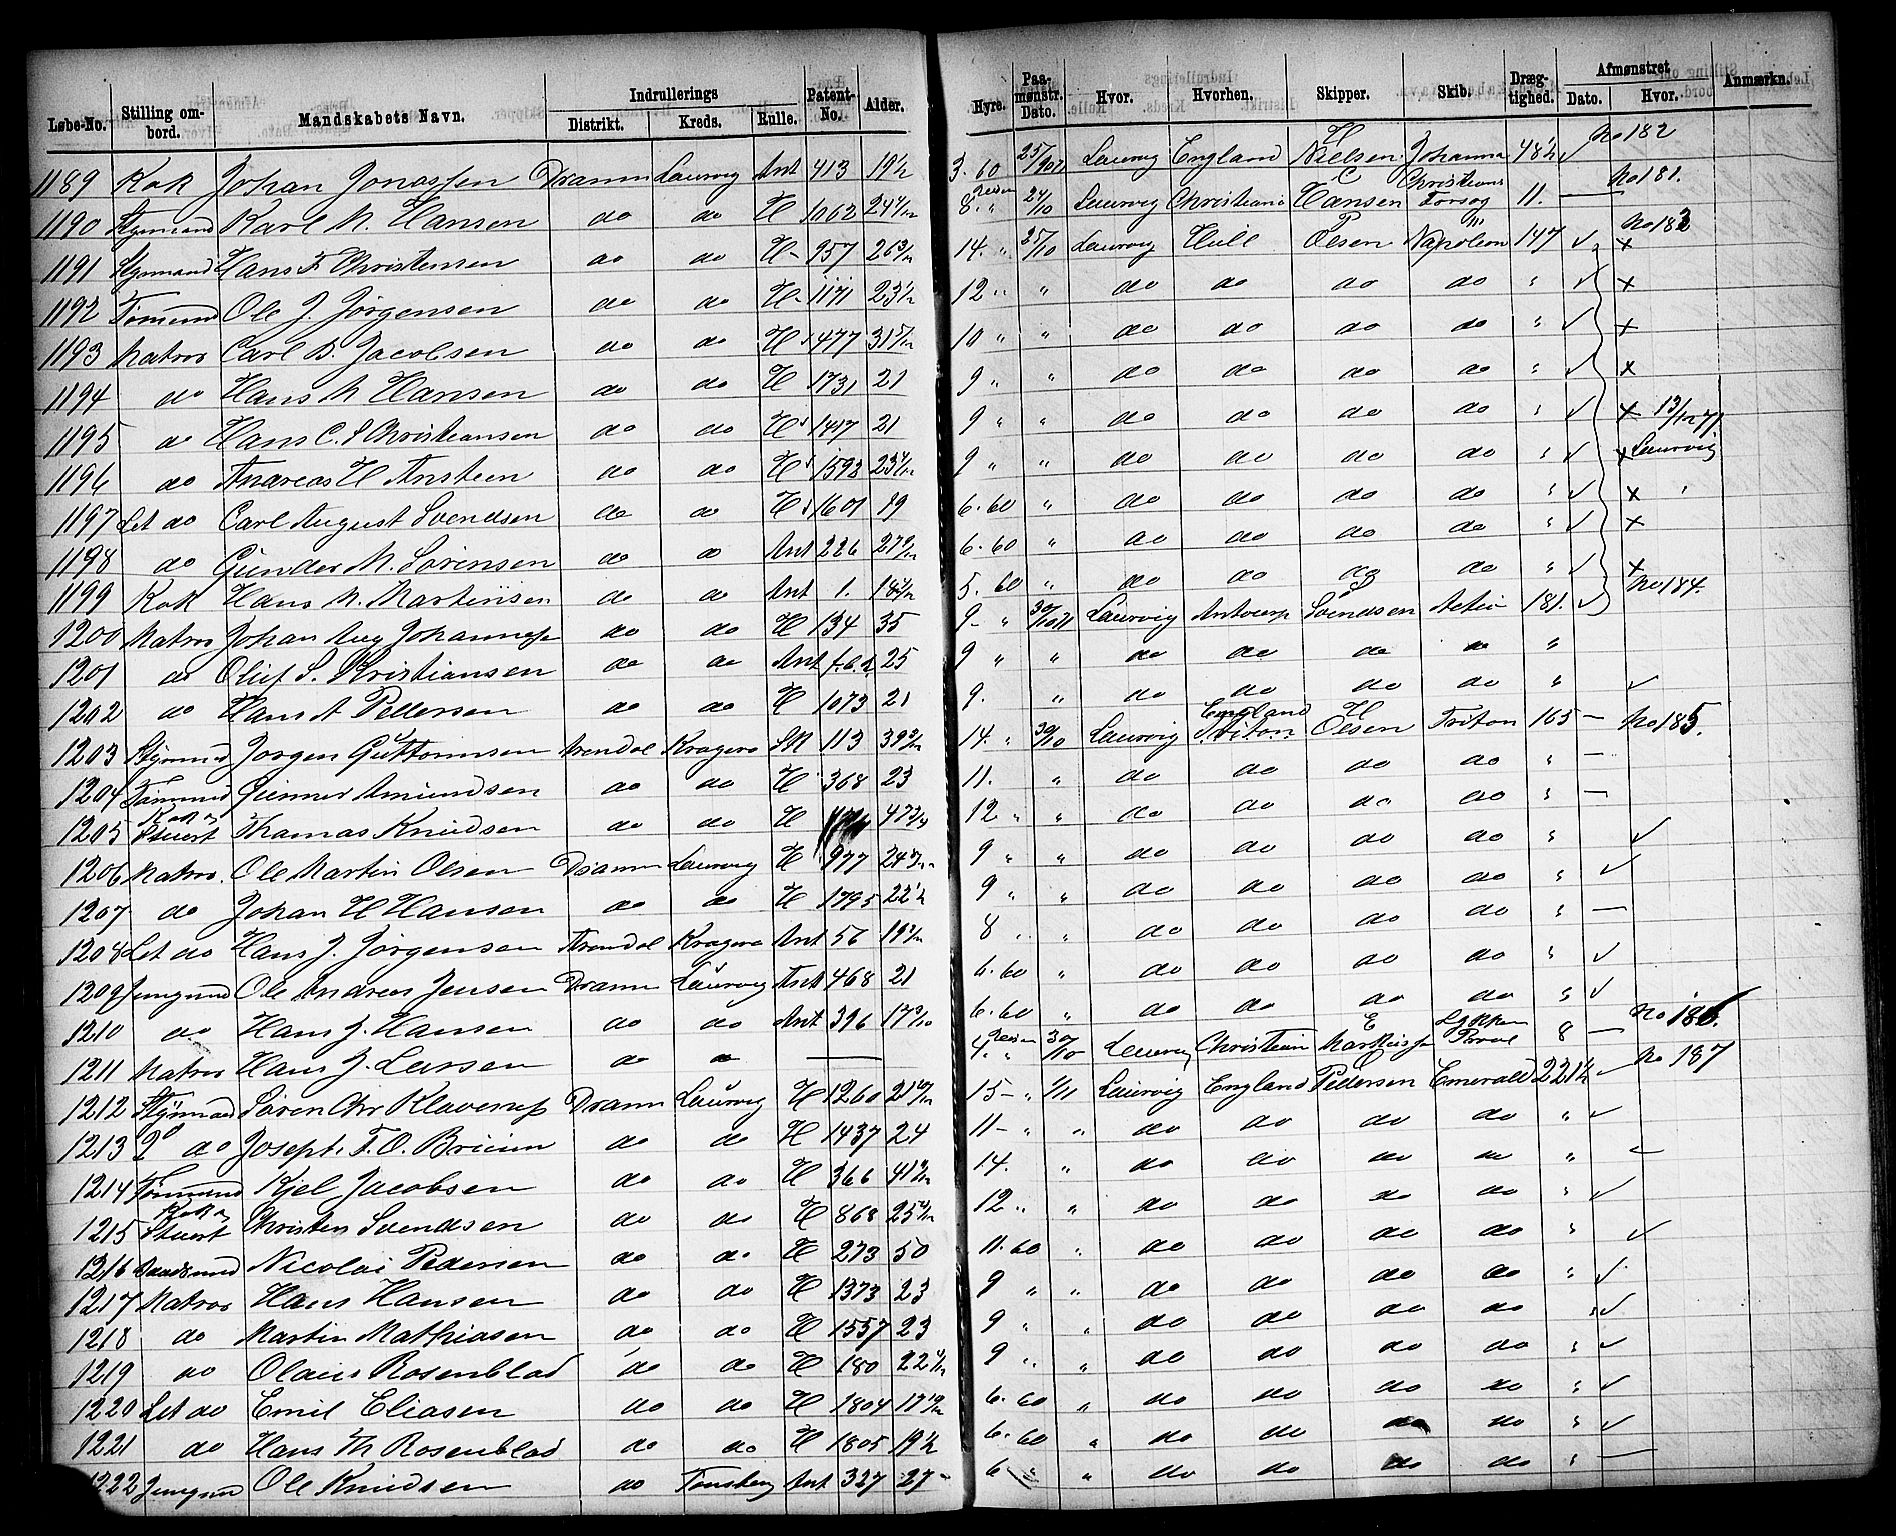 Løbe-No. Stilling om-bord. Mandskabets Navn. Indrullerings Distrikt. Kreds. Rulle. Patent-No. Alder. Hyre. Paa-mønstr. Dato. Hvor. Hvorhen. Skipper. Skib. Dræg-tighed. Afmønstret Dato. Hvor. Anmærkn.
1189 Kok Johan Jonassen Dramm Laurvig Ant 413 19½ 3.60 25/10 71 Laurvig England H Nielsen Johanna 48½ ✓ No 182
1190 Styrmand Karl M. Hansen do do H 1062 8 " 24/10 Laurvig Christiania C Hansen Christians Forsøg 11. — No 181.
1191 Styrmand Hans F Christensen do do H 957 14. " 25/10 Laurvig Hull P Olsen Napoleon 147 ✓ x
1192 Tømmd Ole J. Jørgensen do do H 1171 23½ 12 " " do do do do " ✓ x
1193 Matros Carl B. Jacobsen do do H 477 10 " " do do do do " ✓ x
1194 do Hans M Hansen do do H 1731 21 9 " " do do do do " ✓ x
1195 do Hans C. S Christiansen do do H 1417 21 9 " " do do do do " ✓ x 13/12 71
1196 do Andreas H Ansteen do do H 1592 9 " " do do do do " ✓ x Laurvig
1197 Let do Carl August Svendsen do do H 1601 19 6.60 " do do do do " ✓ x
1198 do Gunder M. Sørensen do do Ant 226 6.60 " do do do do " ✓ x
1199 Kok Hans M. Martinsen do do Ant 1. 5.60 " do do do do " ✓ x
1200 Matros Johan Aug Johannes do do H 134 35 9 " 30/10 71 Laurvig Antwerp Svendsen Activ 181. ✓ No 184.
1201 do Oluf S. Kristiansen do do Ant 25 9 " " do do do do "
1202 do Hans A Pettersen do do H 1073 21 9. " do do do do " ✓
1203 Styrmd Jørgen Guttormsen Arendal Kragerø SM 113 14. " 30/10 Laurvig England H Olsen Triton 165 — No 185.
1204 Tømmd Gunner Amundsen do do H 368 23 11. " do do do do " —
1205 Kok & Stuert Thomas Knudsen do do H 12 " " do do do do " —
1206 Matros. Ole Martin Olsen Dramm Laurvig H 977 9 " " do do do do " ✓
1207 do Johan H Hansen do do H 1795 22½ 9 " " do do do do " ✓
1208 Let do Hans J. Jørgensen Arendal Kragerø Ant 56 8 " " do do do do " —
1209 Jungmd Ole Andreas Jensen Dramm Laurvig Ant 468 21 6.60 " do do do do " ✓
1210 do Hans J. Hansen do do Ant 396 6.60 " do do do do " ✓
1211 Matros Hans J. Larsen do do — 4. " 30/10 Laurvig E 8 — No 186.
1212 Styrmand Søren Chr Klavenes Dramm Laurvig H 1260 15 — " 1/11 Laurvig England Pedersen Emerald 221½ ✓ No 187
1213 do Joseph F. O. Bruun do do H 1437 24 11 — " " do do do do " ✓
1214 Tømmand Kjel Jacobsen do do H 366 14. " do do do do "
1215 Kok & Stuert Christen Svendsen do do H 868 12 " " do do do do " ✓
1216 Baadsmd Nicolai Pedersen do do H 273 50 11.60 " do do do do " ✓
1217 Matros Hans Hansen do do H 1373 23 9 " " do do do do " ✓
1218 do Martin Mathiasen do do H 1557 23 9 " " do do do do " ✓
1219 do Olaus Rosenblad do do H 180 9 " " do do do do " ✓
1220 Let do Emil Eliasen do do H 1804 6.60 " do do do do " ✓
1221 do Hans Th Rosenblad do do H 1805 19½ 6.60 " do do do do " ✓
1222 Jungmd Ole Knudsen do Tønsberg Ant 327 27 6 " " do do do do " —